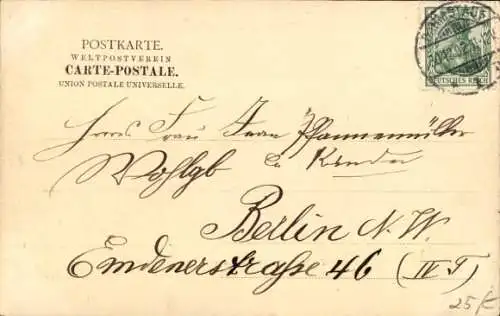 POSTKARTE.
WELTPOSTVEREIN
CARTE-POSTALE.
UNION POSTALE UNIVERSELLE.
DEUTSCHES REICH
Frau Jean Pfannenmüller
Wohlgb & Kinder
Berlin N. W.
Emdenerstraße 46 (IV T)
25 €